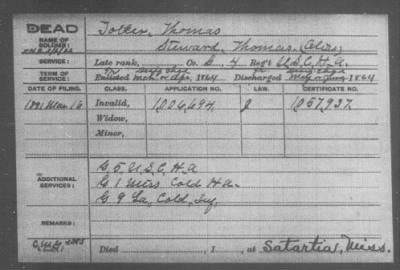 DEAD
Toller, Thomas
NAME OF SOLDIER:
Steward, Thomas, (Alias)
SERVICE:
Late rank, Co. G, 4 Reg't U.S.C.H.A.
TERM OF SERVICE:
Enlisted 1864 Discharged 1864
DATE OF FILING.
CLASS.
APPLICATION NO.
LAW.
CERTIFICATE NO.
1891 Mar. 16
Invalid,
1,006,694
1,057,937
Widow,
Minor,
ADDITIONAL SERVICES:
G 5 U.S.C.H.A
G 1 Miss Cold H A.
G 9 La, Cold, Inf,
REMARKS:
Died , 1 , at Satartia, Miss.